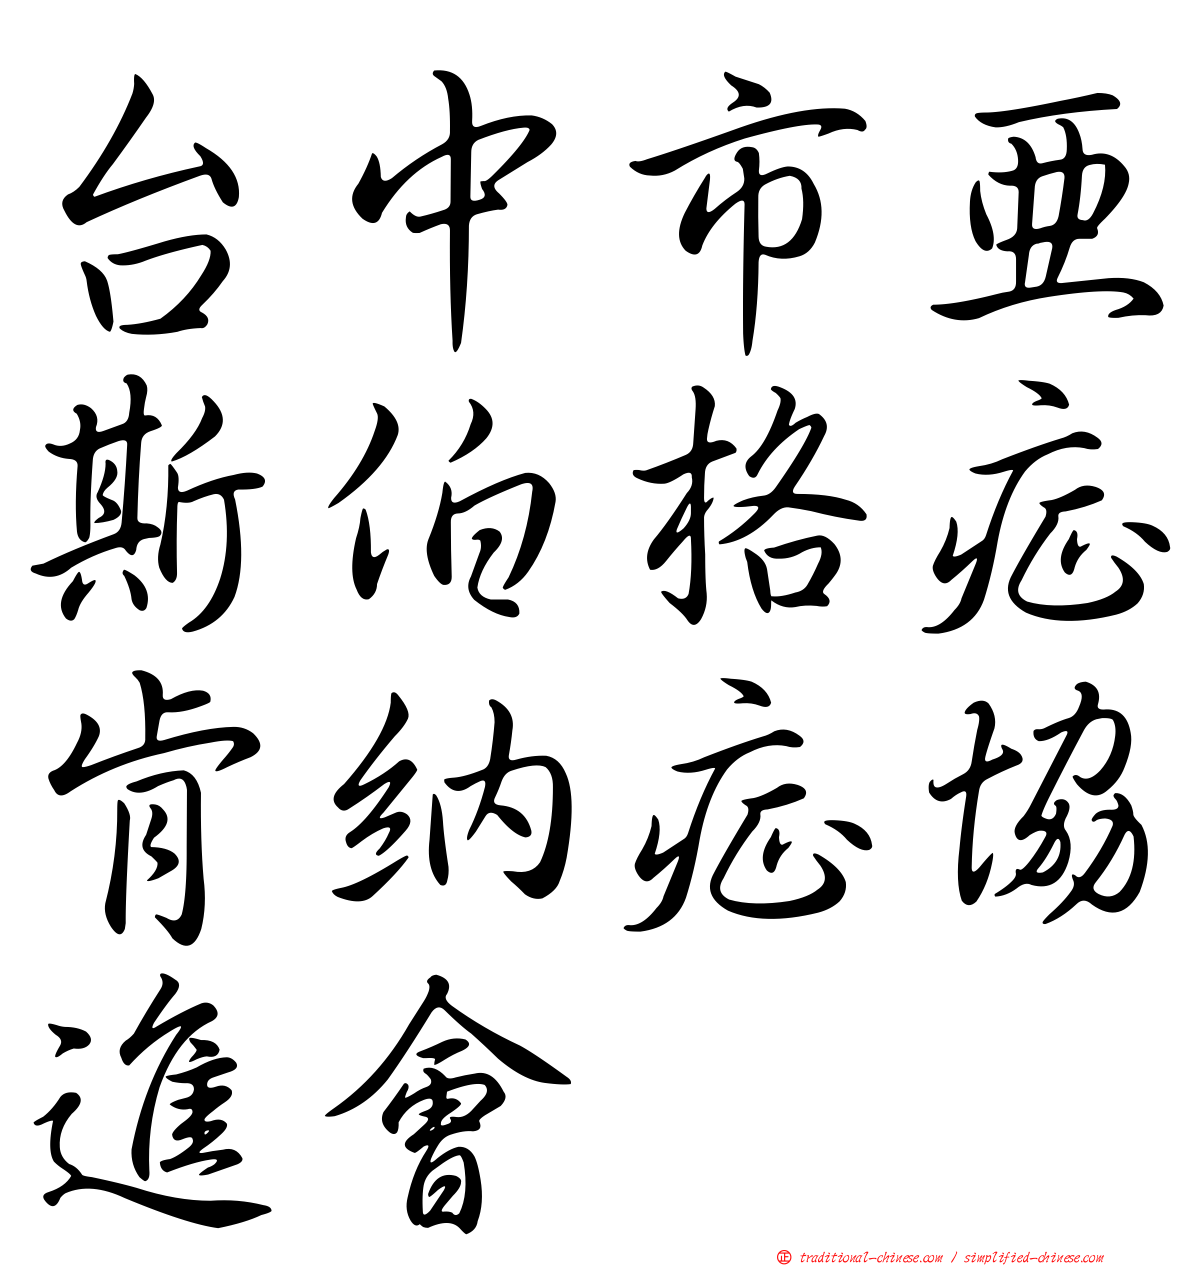 台中市亜
斯伯格症
肯納症協
進會
㊣ traditional-chinese.com / simplified-chinese.com